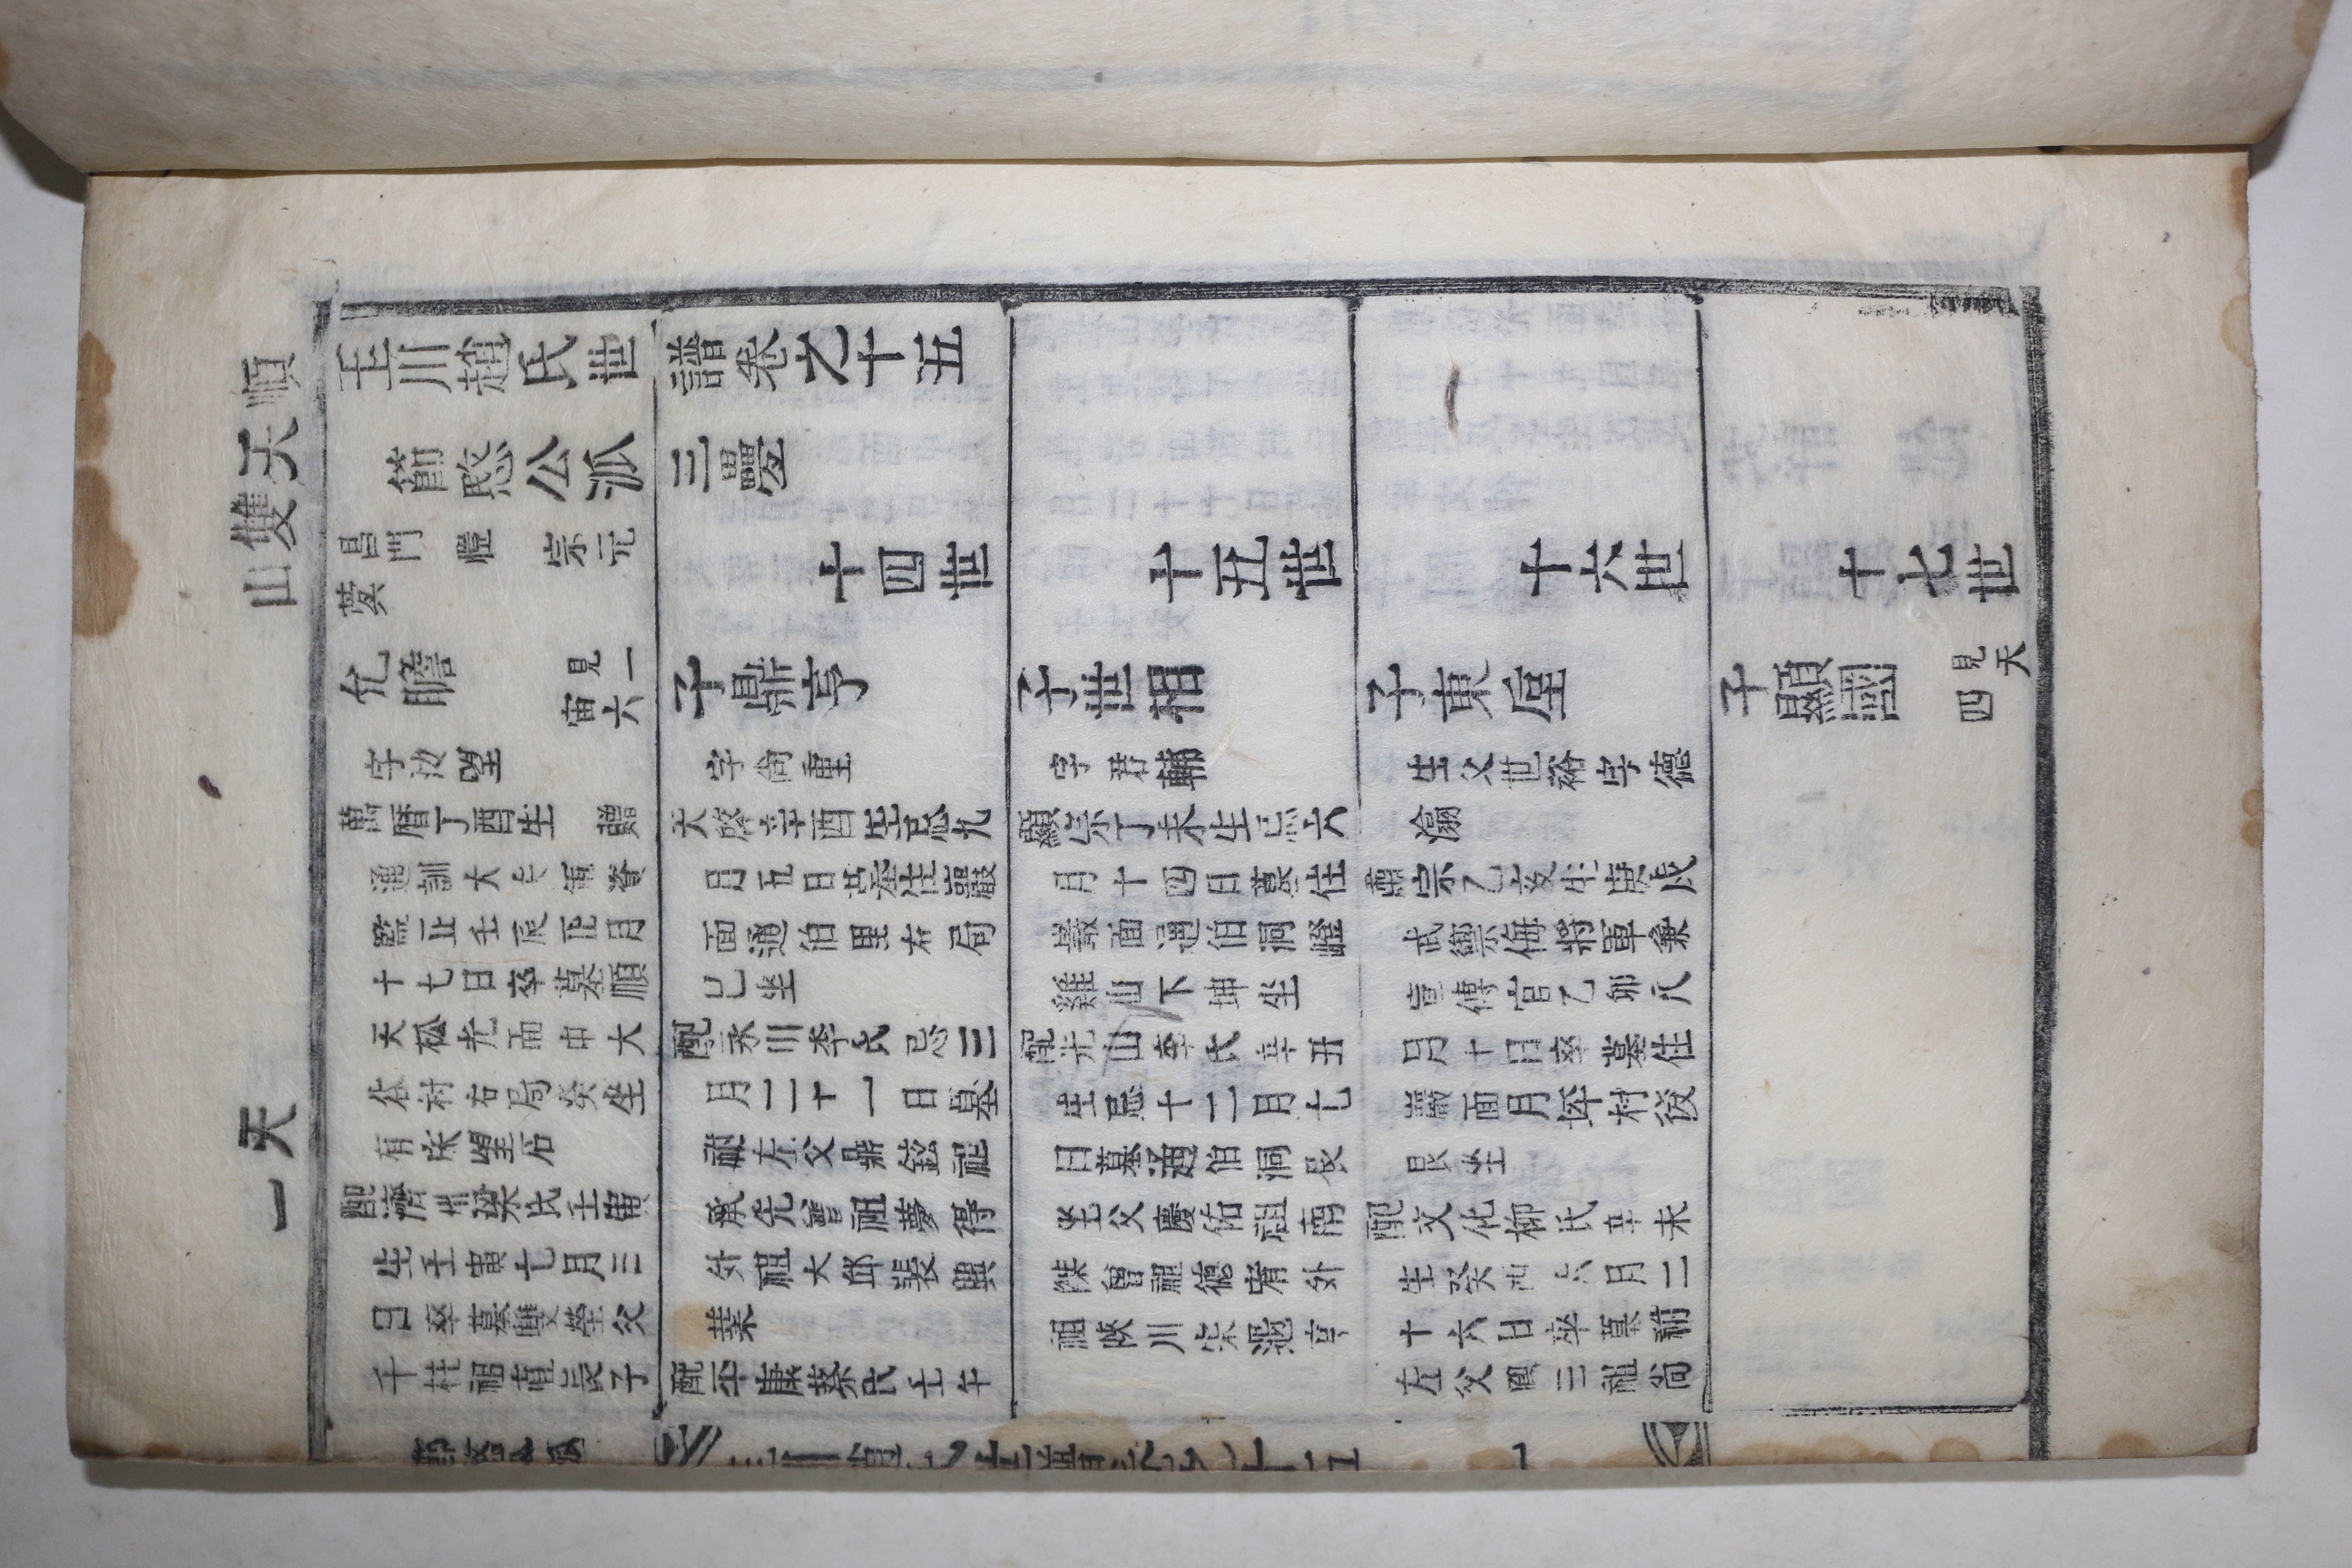 順天雙山
天一
玉川趙氏世譜卷之十五
節愍公派 三疊
昌門 愷 宗元
蓂
十四世
十五世
十六世
十七世
允瞻
見一
宙六
字汝望
萬曆丁酉生 贈
通訓大夫軍資
監正壬辰正月
十七日卒墓順
天松光面中大
谷村右局癸坐
有床望石
配濟州梁氏壬寅
生壬寅七月三
日卒墓雙塋父
千柱祖直長子
子鼎亨
字尙重
天啓辛酉生忌九
月五日墓住巖
面通伯里右局
巳坐
配永川李氏忌三
月二十一日墓
祔左父鼎鉉祖
承先曾祖夢得
外祖大邱裴興
業
配平康蔡氏壬午
子世相
字君輔
顯宗丁未生忌六
月十四日墓住
巖面通伯洞嶝
雞山下坤坐
配光山李氏辛丑
生忌十二月七
日墓通伯洞艮
坐父慶佑祖南
傑曾祖德宥外
祖陜川宋
子東垕
生父世裕字德
瀛
肅宗乙亥生庚戌
武禦侮將軍兼
宣傳官乙卯八
月十日卒墓住
巖面月坪村後
艮坐
配文化柳氏辛未
生癸酉六月二
十六日卒墓祔
左父興三祖尙
子顯國
見天
四